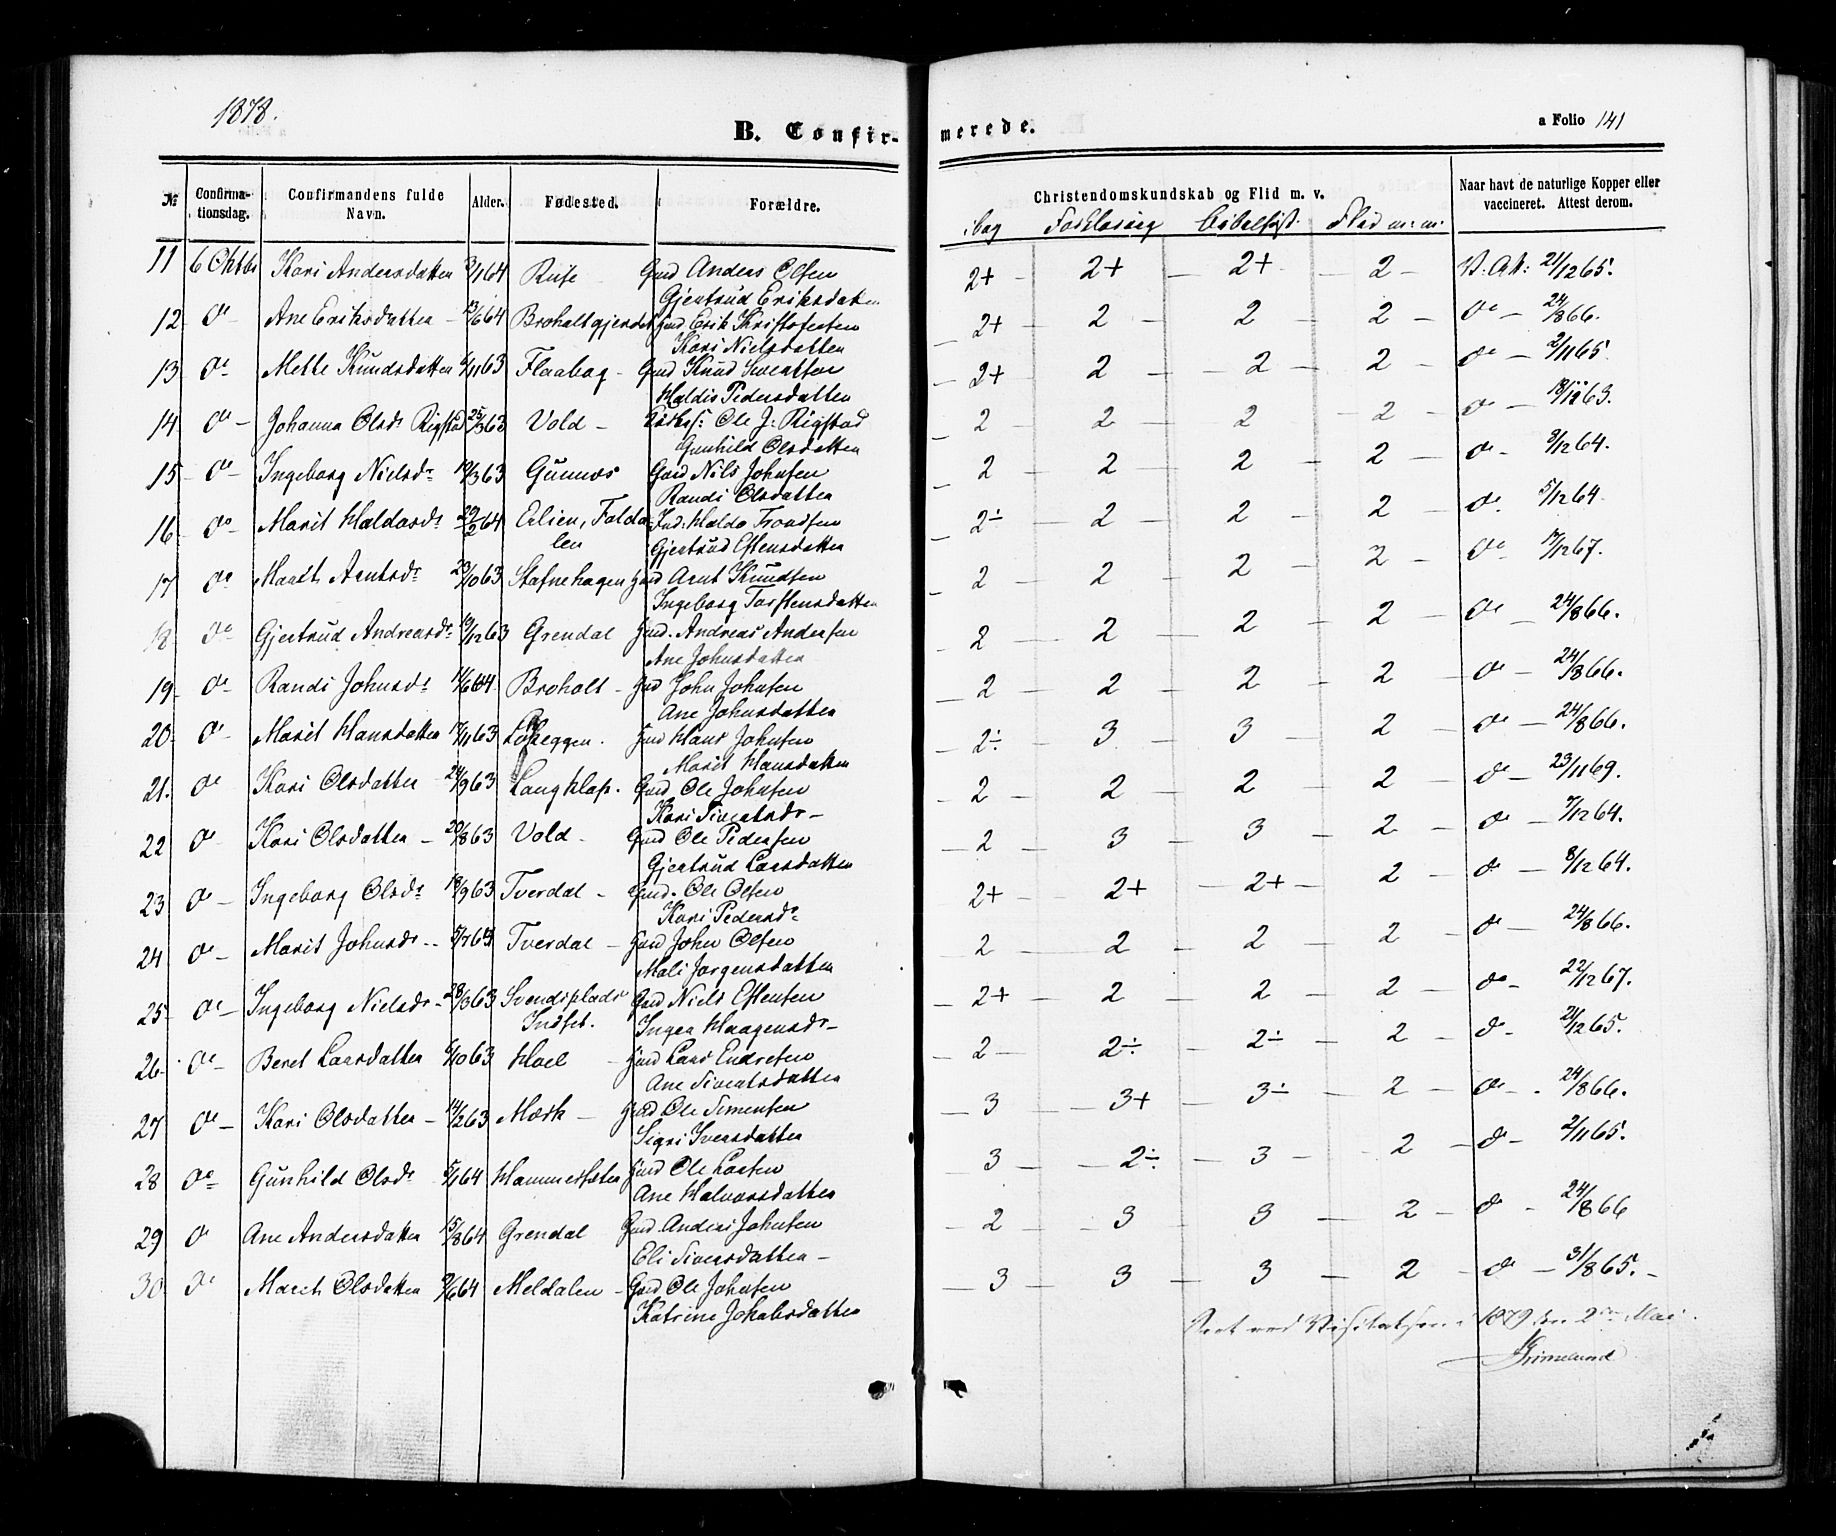 1878.
B. Confir-
merede.
a Folio 141
№
Confirma-
tionsdag.
Confirmandens fulde
Navn.
Alder.
Fødested.
Forældre.
Christendomskundskab og Flid m. v.
Naar havt de naturlige Kopper eller
vaccineret. Attest derom.
Forklaring Bibelhist. Flid m: m:
11 6 Oktbr Kari Andersdatter 3/1 64 Gmd Anders Olsen 2+ 2+ 2+ 2 V. At: 21/12 65.
Gjertrud Eriksdatter
12 do Ane Eriksdatter 13/6 64 Broholtgjerdet Gmd Erik Kristofersen 2+ 2 2 2 do 24/8 66.
Kari Nielsdatter
13 do Mette Knudsdatter 6/11 63 Flaabag Gmd Knud Sivertsen 2+ 2 2 2 do 2/11 65.
Haldis Pedersdatter
14 do Johanna Olsdr Rigstad 25/3 63 Vold Ole J. Rigstad 2 2 2 2 do 63.
Gunhild Olsdatter
15 do Ingeborg Nielsdr 63 Gunnes Gmd Nils Johnsen 2 2 2 2 do 9/12 64.
Randi Olsdatter
16 do Marit Haldosdr 29/2 64 Erlien, Foldalen Ind: Haldo Trondsen 2÷ 2 2 2 do 5/12 64.
Gjertrud Estensdatter
17 do Marit Arntsdr 23/10 63 Stafnehagen Gmd Arnt Knudsen 2 2 2 2 do 17/12 67.
Ingeborg Torstensdatter
18 do Gjertrud Andreasdr 19/12 63 Grendal Gmd. Andreas Andersen 2 2 2 2 do 24/8 66.
Ane Johnsdatter
19 do Randi Johnsdr 11/6 64 Broholt Gmd John Johnsen 2 2 2 2 do 24/8 66.
Ane Johnsdatter
20 do Marit Hansdatter 17/11 63 Gmd Hans Johnsen 2÷ 3 3 2 do 24/8 66.
Marit Hansdatter
21. do Kari Olsdatter 24/9 63 Langklop. Gmd Ole Johnsen 2 2 2 2 do 23/11 69.
Kari Sivertsdr
22 do Kari Olsdatter 20/8 63 Vold Gmd Ole Pedersen 2 3 3 2 do 7/12 64.
Gjertrud Larsdatter
23 do Ingeborg Olsdr 19/9 63 Tverdal Gmd. Ole Olsen 2+ 2+ 2+ 2 do 8/12 64.
Kari Pedersdr
24 do Marit Johnsdr 5/7 63 Tverdal Gmd John Olsen 2 2 2 2 do 24/8 66.
Mali Jørgensdatter
25 do Ingeborg Nielsdr 28/3 63 Svendsplads Gmd Niels Estensen 2+ 2 2 2 do 22/12 67.
Indset. Inger Haagensdr
26 do Beret Larsdatter 6/10 63 Hoel Gmd Lars Endresen 2 2÷ 2÷ 2 do 21/12 65.
Ane Sivertsdatter
27 do Kari Olsdatter 14/2 63 Mærk Gmd Ole Simensen 3 3+ 3÷ 2 do 24/8 66.
Sigri Iversdatter
28 do Gunhild Olsdr 5/1 64 Hammersæter Gmd Ole Larsen 3 2÷ 3 2 do 2/11 65.
Ane Halvorsdatter
29 do Ane Andersdatter 15/8 64 Grendal Gmd Anders Johnsen 2 3 3 2 do 24/8 66
Eli Siversdatter
30 do Marit Olsdatter 9/6 64 Meldalen Gmd Ole Johnsen 3 3 3 2 do 31/8 65.
Katrine Jakobsdatter
Seet ved Visitatsen 1879 den 2den Mai.
Grimelund